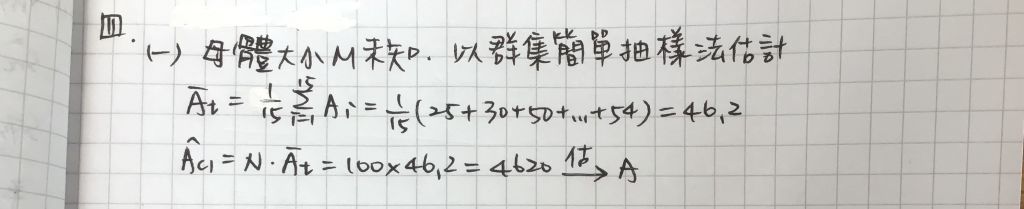 四.
(一) 母體大小M未知. 以群集簡單抽樣法估計
Āt = 1/15 Σ_{i=1}^{15} Ai = 1/15 (25+30+50+...+54) = 46,2
Âc1 = N · Āt = 100×46,2 = 4620 估→ A